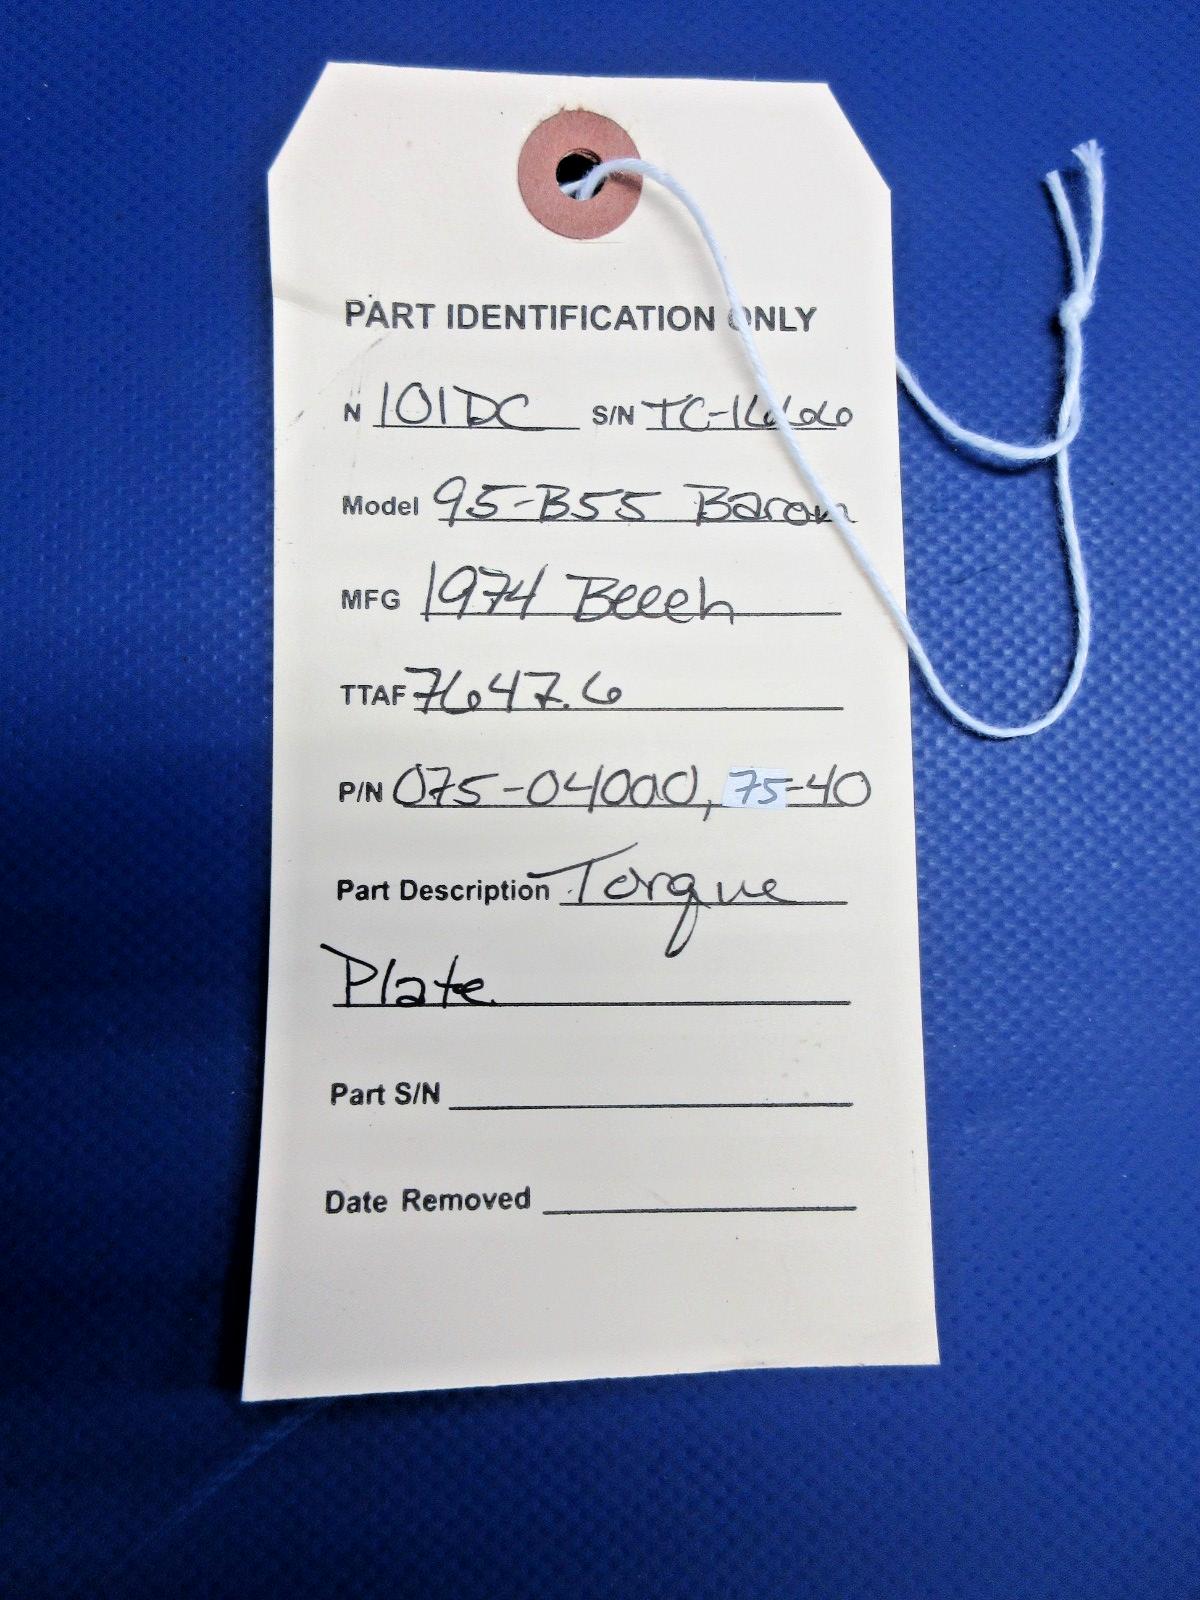 PART IDENTIFICATION ONLY
N 101DC S/N TC-1666
Model 95-B55 Baron
MFG 1974 Beech
TTAF 7647.6
P/N 075-04000, 75-40
Part Description Torque
Plate
Part S/N
Date Removed